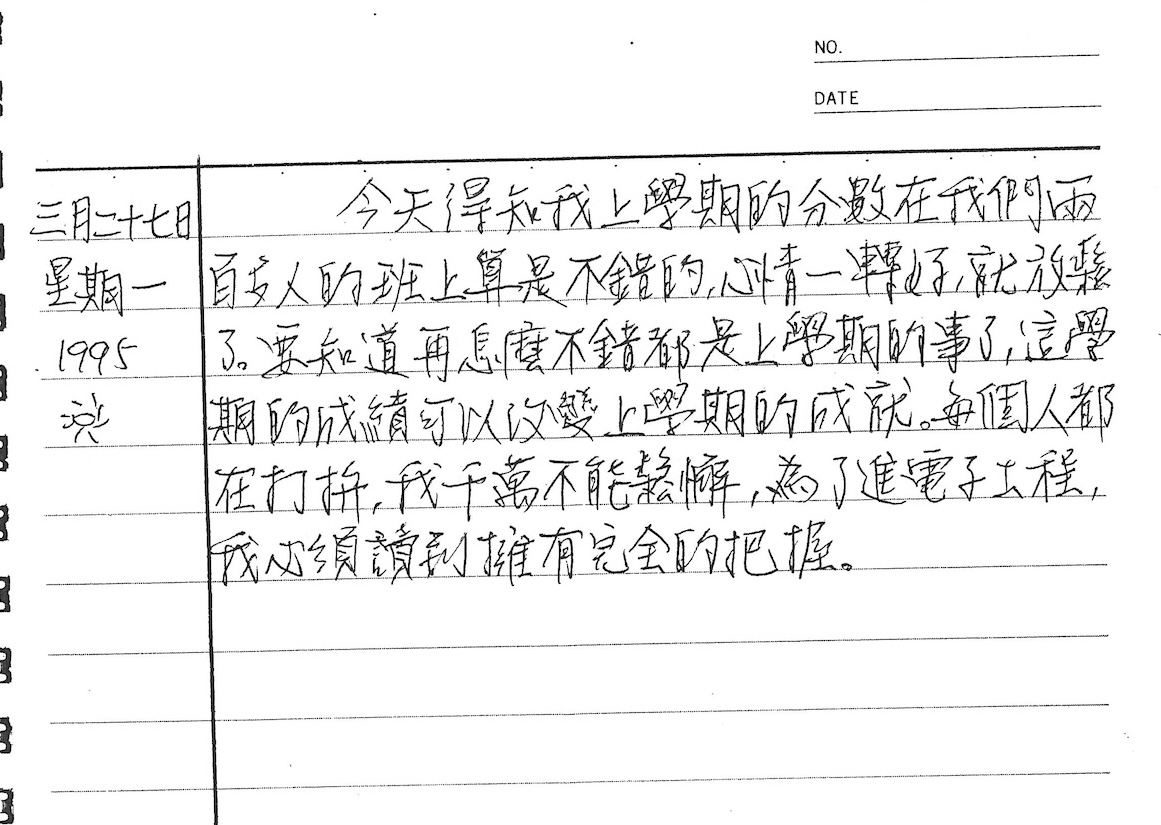 NO.
DATE
三月二十七日
星期一
1995
今天得知我上學期的分數在我們兩
百多人的班上算是不錯的,心情一轉好,就放鬆
了。要知道再怎麼不錯都是上學期的事了,這學
期的成績可以改變上學期的成就。每個人都
在打拚,我千萬不能鬆懈,為了進電子工程,
我必須讀到擁有完全的把握。